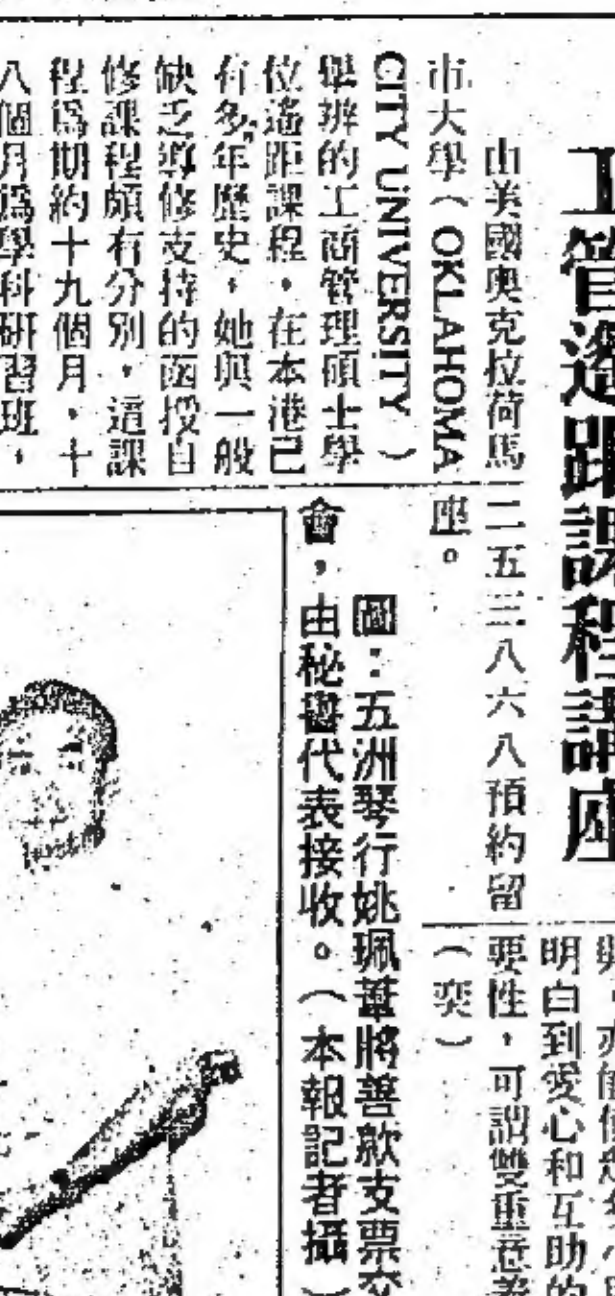 工管遙距課程講座
由美國奧克拉荷馬
市大學（OKLAHOMA
CITY UNIVERSITY）
舉辦的工商管理碩士學
位遙距課程，在本港已
有多年歷史，她與一般
缺乏導修支持的函授自
修課程頗有分別，這課
程為期約十九個月，十
八個月為學科研習班，
二五三八六八預約留
座。
圖：五洲琴行姚珮葦將善款支票交
會，由秘書代表接收。（本報記者攝）
明白到愛心和互助的
要性，可謂雙重意義
（奕）